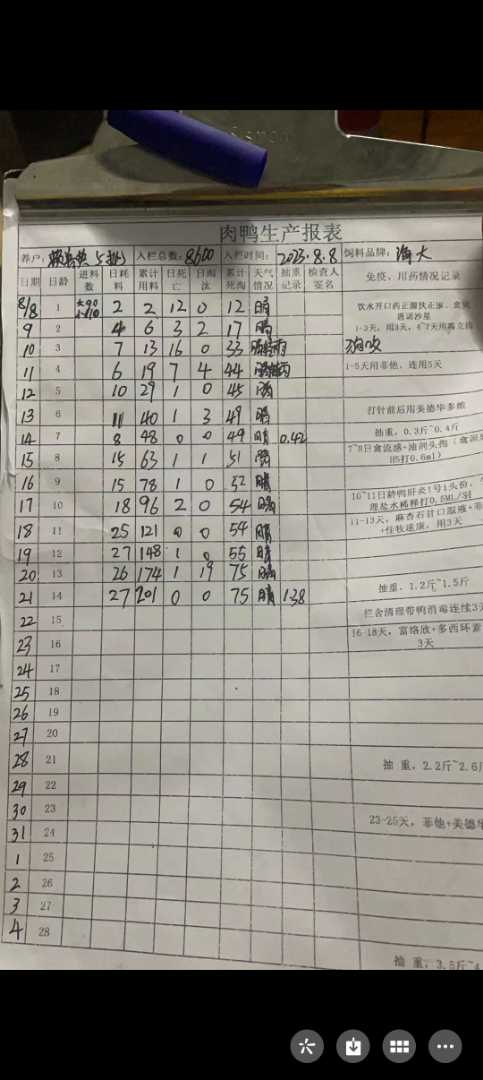 肉鸭生产报表
养户: 5批 入栏总数: 8600 入栏时间: 2023.8.8 饲料品牌: 海大
日期 日龄 进料数 日耗料 累计用料 日死亡 日淘汰 累计死淘 天气情况 抽重记录 检查人签名 免疫、用药情况记录
8/8 1 2 2 12 0 12 晴 饮水开口药
9 2 4 6 3 2 17 晴 1-3天, 用3天, 4~7天用
10 3 7 13 16 0 33
11 4 6 19 7 4 44 1-5天用菲他、连用5天
12 5 10 29 1 0 45 晴
13 6 11 40 1 3 49 晴 打针前后用美德华多维
14 7 8 48 0 0 49 晴 0.42 抽重, 0.3斤~0.4斤
15 8 15 63 1 1 51 晴 7~8日禽流感+油剂
H5打0.6ml)
16 9 15 78 1 0 52 晴
17 10 18 96 2 0 54 晴 10~11日
18 11 25 121 0 0 54 晴 11-13天, 麻杏石甘口服液+
用3天
19 12 27 148 1 0 55 晴
20 13 26 174 1 19 75 晴
21 14 27 201 0 0 75 晴 1.38 抽重, 1.2斤~1.5斤
22 15 栏舍清理带鸭消毒连续3
23 16 16-18天, 富络欣+多西环素
3天
24 17
25 18
26 19
27 20
28 21 抽 重, 2.2斤~2.6
29 22
30 23 23-25天, 菲他+美德华
31 24
1 25
2 26
3 27
4 28
抽 重, 3.5斤~